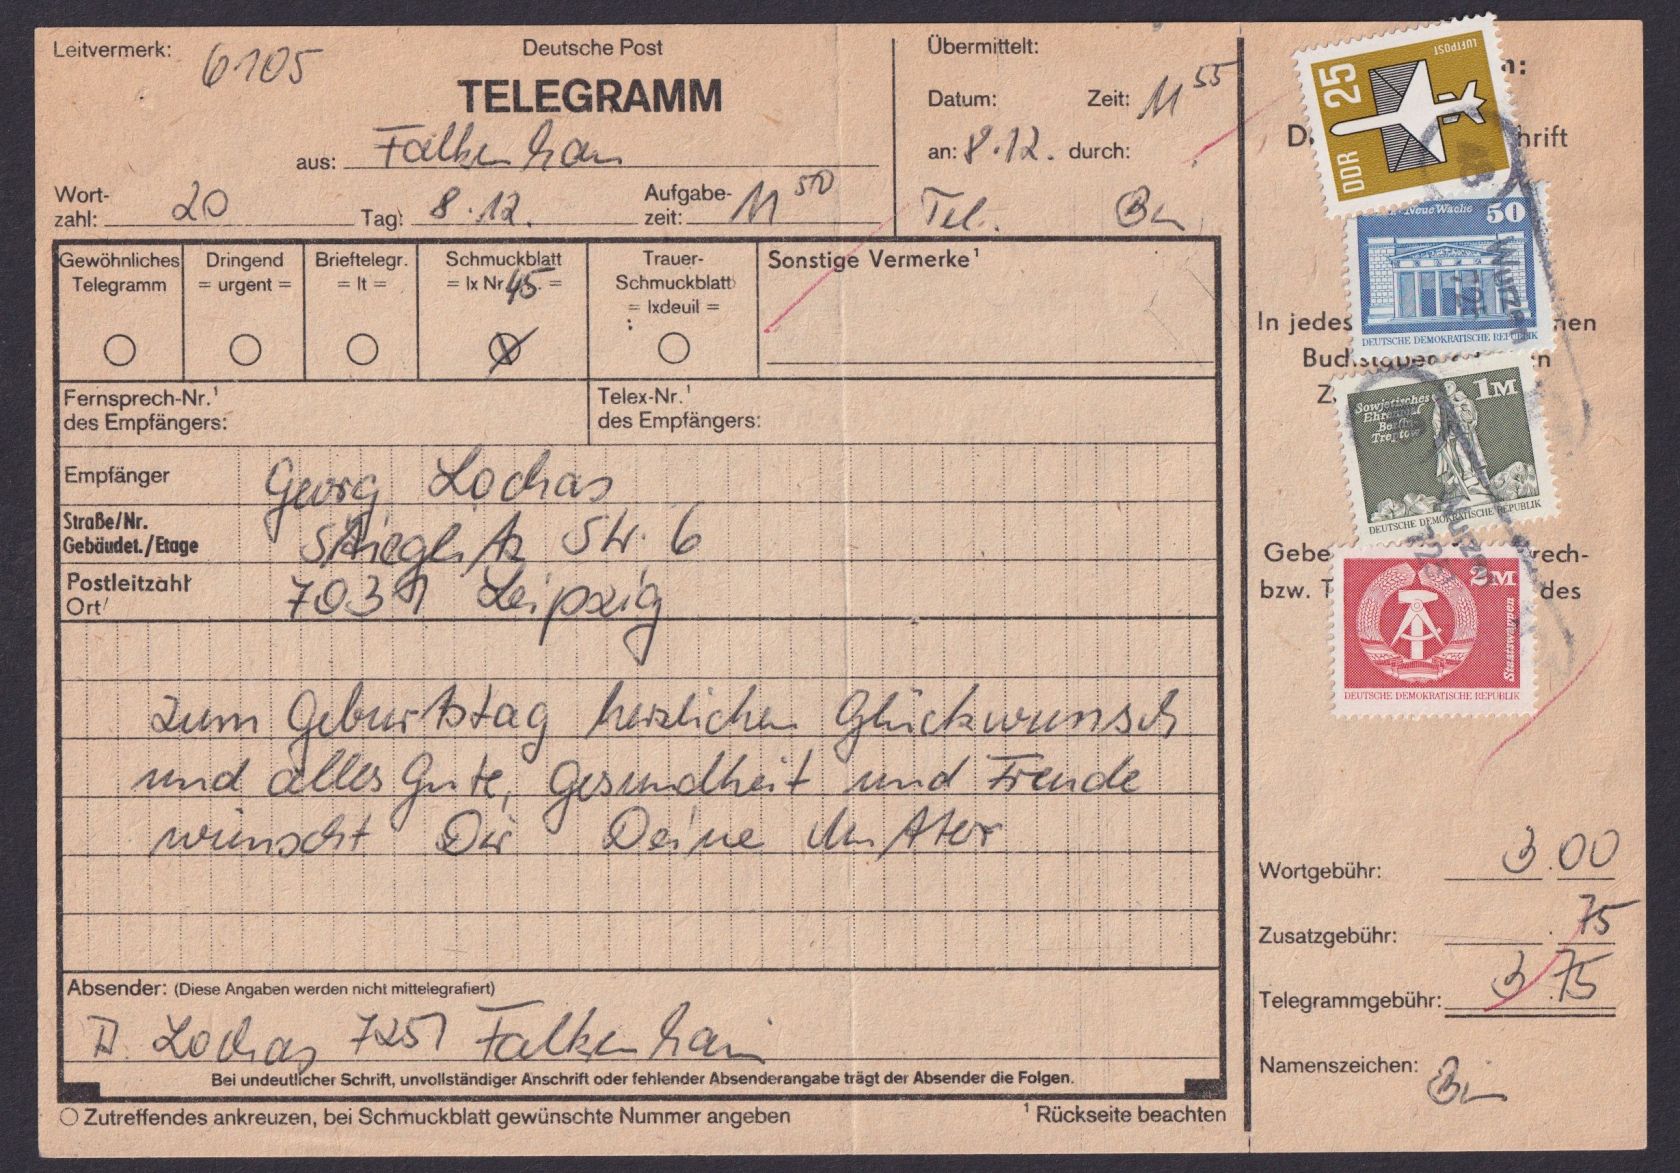 Leitvermerk: 6105
Deutsche Post
TELEGRAMM
aus: Falkenhain
Wort-
zahl: 20
Tag: 8.12.
Aufgabe-
zeit: 11 50
Übermittelt:
Datum: Zeit: 11 55
an: 8.12. durch:
Tel.
Gewöhnliches
Telegramm
Dringend
= urgent =
Brieftelegr.
= lt =
Schmuckblatt
= lx Nr. 45. =
Trauer-
Schmuckblatt
= lxdeuil =
Sonstige Vermerke¹
Fernsprech-Nr.¹
des Empfängers:
Telex-Nr.¹
des Empfängers:
Empfänger Georg Lochas
Straße/Nr.
Gebäudet./Etage
Stieglitz Str. 6
Postleitzahl
Ort
7031 Leipzig
zum Geburtstag herzlichen Glückwunsch
und alles Gute, Gesundheit und Freude
wünscht Dir Deine Mutter
Absender: (Diese Angaben werden nicht mittelegrafiert)
Lochas 7251 Falkenhain
Bei undeutlicher Schrift, unvollständiger Anschrift oder fehlender Absenderangabe trägt der Absender die Folgen.
Zutreffendes ankreuzen, bei Schmuckblatt gewünschte Nummer angeben
¹ Rückseite beachten
LUFTPOST
25
DDR
Neue Wache 50
DEUTSCHE DEMOKRATISCHE REPUBLIK
1M
Sowjetisches
Ehrenmal
Berlin-
Treptow
DEUTSCHE DEMOKRATISCHE REPUBLIK
2M
Staatswappen
DEUTSCHE DEMOKRATISCHE REPUBLIK
Wurzen
In jedes
bzw.
des
Wortgebühr: 3.00
Zusatzgebühr: .75
Telegrammgebühr: 3.75
Namenszeichen: